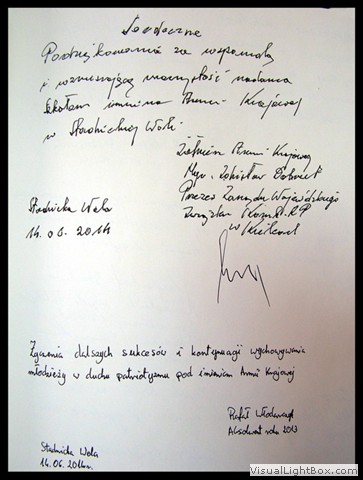 Serdeczne
Podziękowania za wspaniałą
i wzruszającą uroczystość nadania
Szkołom imienia Armii Krajowej
w Stadnickiej Woli.
Żołnierz Armii Krajowej
Mjr. Zdzisław
Prezes Zarządu Wojewódzkiego
Związku Komb. RP
w Kielcach
Stadnicka Wola
14.06.2014
Życzenia dalszych sukcesów i kontynuacji wychowywania
młodzieży w duchu patriotyzmu pod imieniem Armii Krajowej
Rafał
Absolwent roku 2013
Stadnicka Wola
14.06.2014r.
VisualLightBox.com